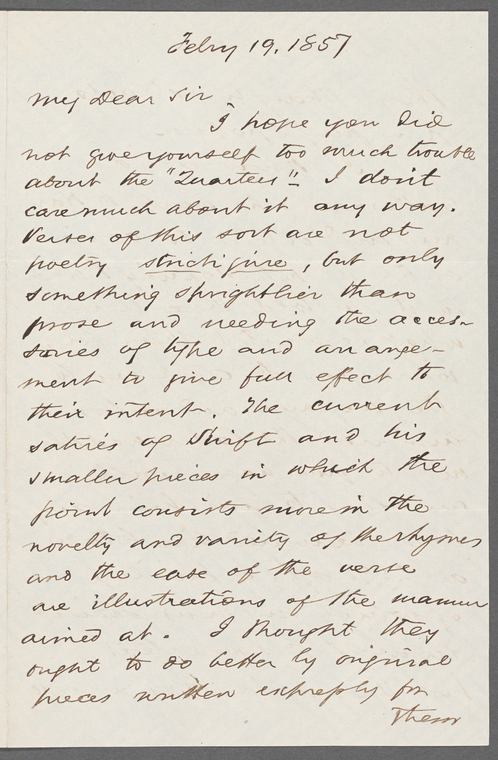 Febry 19, 1857
My Dear Sir
I hope you did
not give yourself too much trouble
about the "Quarters". I don't
care much about it any way.
Verses of this sort are not
poetry stricti juris, but only
something sprightlier than
prose and needing the acces-
sories of type and arrange-
ment to give full effect to
their intent. The current
satires of Swift and his
smaller pieces in which the
point consists more in the
novelty and variety of the rhymes
and the ease of the verse
are illustrations of the manner
aimed at. I thought they
ought to do better by original
pieces written expressly for
them